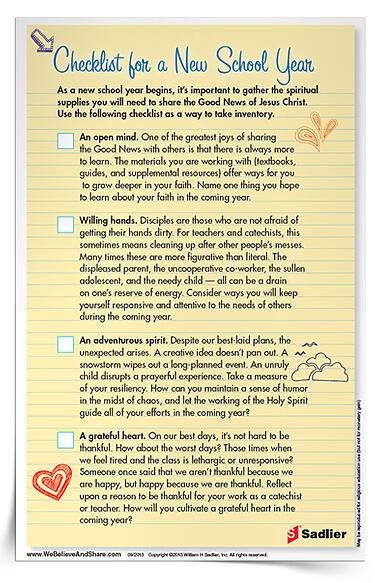 Checklist for a New School Year
As a new school year begins, it's important to gather the spiritual
supplies you will need to share the Good News of Jesus Christ.
Use the following checklist as a way to take inventory.
An open mind. One of the greatest joys of sharing
the Good News with others is that there is always more
to learn. The materials you are working with (textbooks,
guides, and supplemental resources) offer ways for you
to grow deeper in your faith. Name one thing you hope
to learn about your faith in the coming year.
Willing hands. Disciples are those who are not afraid of
getting their hands dirty. For teachers and catechists, this
sometimes means cleaning up after other people's messes.
Many times these are more figurative than literal. The
displeased parent, the uncooperative co-worker, the sullen
adolescent, and the needy child — all can be a drain
on one's reserve of energy. Consider ways you will keep
yourself responsive and attentive to the needs of others
during the coming year.
An adventurous spirit. Despite our best-laid plans, the
unexpected arises. A creative idea doesn't pan out. A
snowstorm wipes out a long-planned event. An unruly
child disrupts a prayerful experience. Take a measure
of your resiliency. How can you maintain a sense of humor
in the midst of chaos, and let the working of the Holy Spirit
guide all of your efforts in the coming year?
A grateful heart. On our best days, it's not hard to be
thankful. How about the worst days? Those times when
we feel tired and the class is lethargic or unresponsive?
Someone once said that we aren't thankful because we
are happy, but happy because we are thankful. Reflect
upon a reason to be thankful for your work as a catechist
or teacher. How will you cultivate a grateful heart in the
coming year?
May be reproduced for religious educational use (but not for monetary gain)
Sadlier
www.WeBelieveAndShare.com 09/2013 Copyright ©2013 William H Sadlier, Inc. All rights reserved.